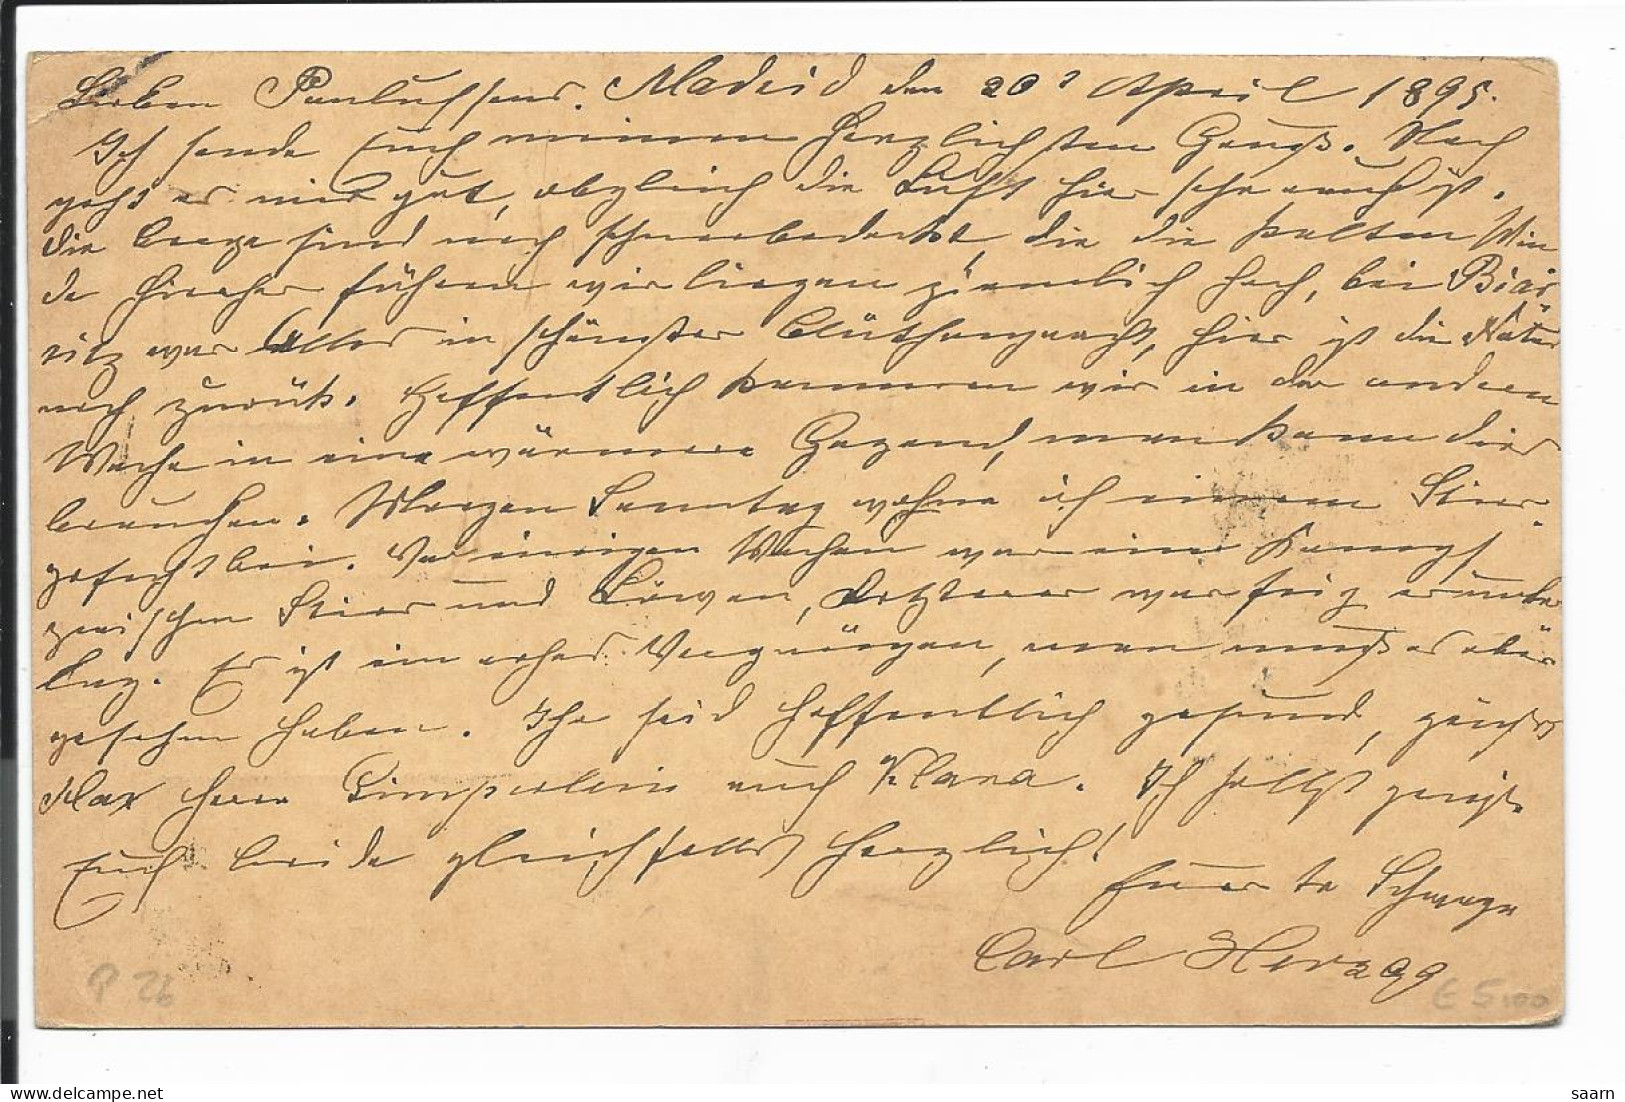 Lieben Paulussens. Madrid den 20 April 1895.
Ich sende Euch meinen herzlichsten Gruß. Noch
geht es mir gut, obgleich die Luft hier sehr rauh ist.
die Berge sind noch schneebedeckt, die die kalten Win
de hierher führen wir liegen ziemlich hoch, bei Biar
ritz war Alles in schönster Blüthenpracht, hier ist die Natur
noch zurück. Hoffentlich kommen wir in der anderen
Woche in eine wärmere Gegend, man kann dies
brauchen. Morgen Sonntag wohne ich einem Stier
gefecht bei. Vor einigen Wochen war ein Kampf
zwischen Stier und Löwen, Letzterer war feig er unter
lag. Es ist ein rohes Vergnügen, man muß es aber
gesehen haben. Ihr seid hoffentlich gesund, grüßt
Max Herrn auch Klara. Ich selbst grüße
Euch beide gleichfalls herzlich!
Euer Schwager
Carl Herzog
P 26
E 5,00
saarn